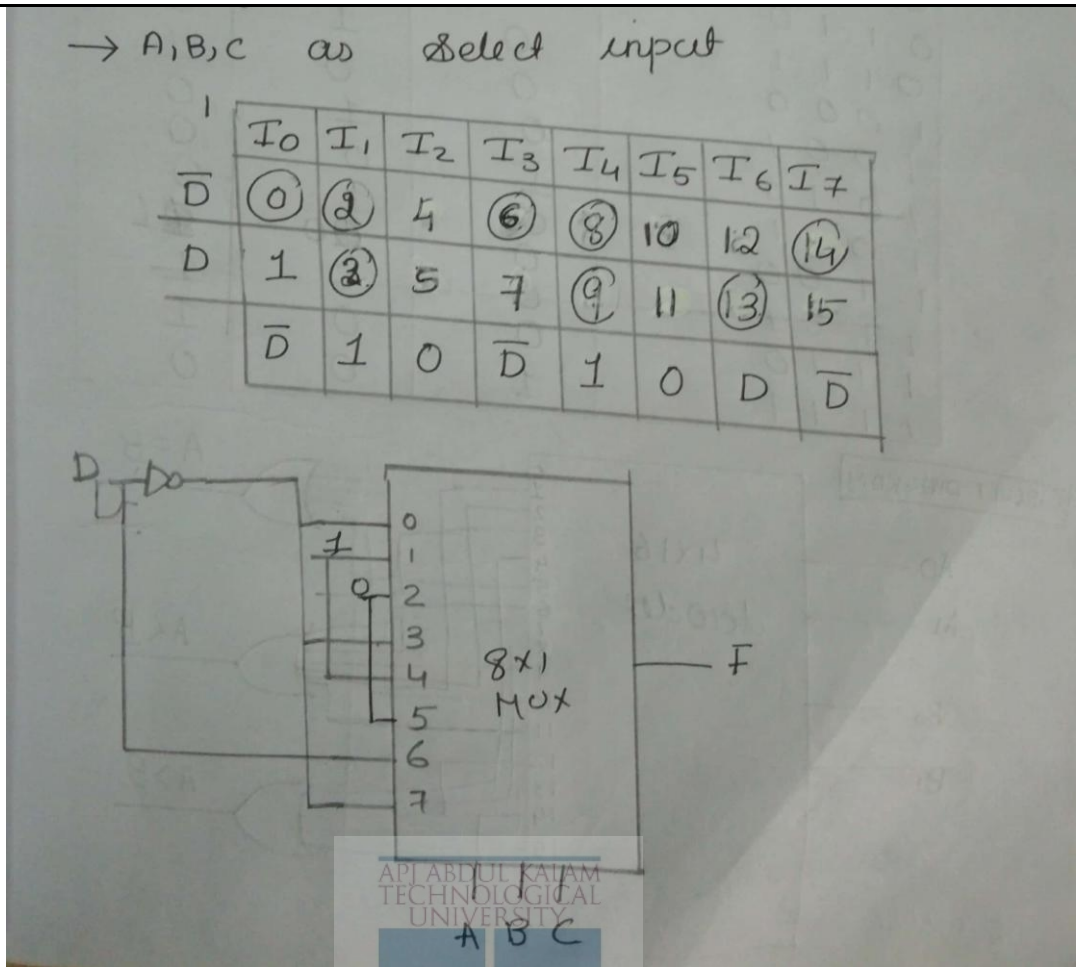 → A,B,C as Select input
I0 I1 I2 I3 I4 I5 I6 I7
D̅ 0 2 4 6 8 10 12 14
D 1 3 5 7 9 11 13 15
D̅ 1 0 D̅ 1 0 D D̅
D
0
1 1
0 2
3
4
5
6
7
8x1
MUX
F
APJ ABDUL KALAM
TECHNOLOGICAL
UNIVERSITY
A B C